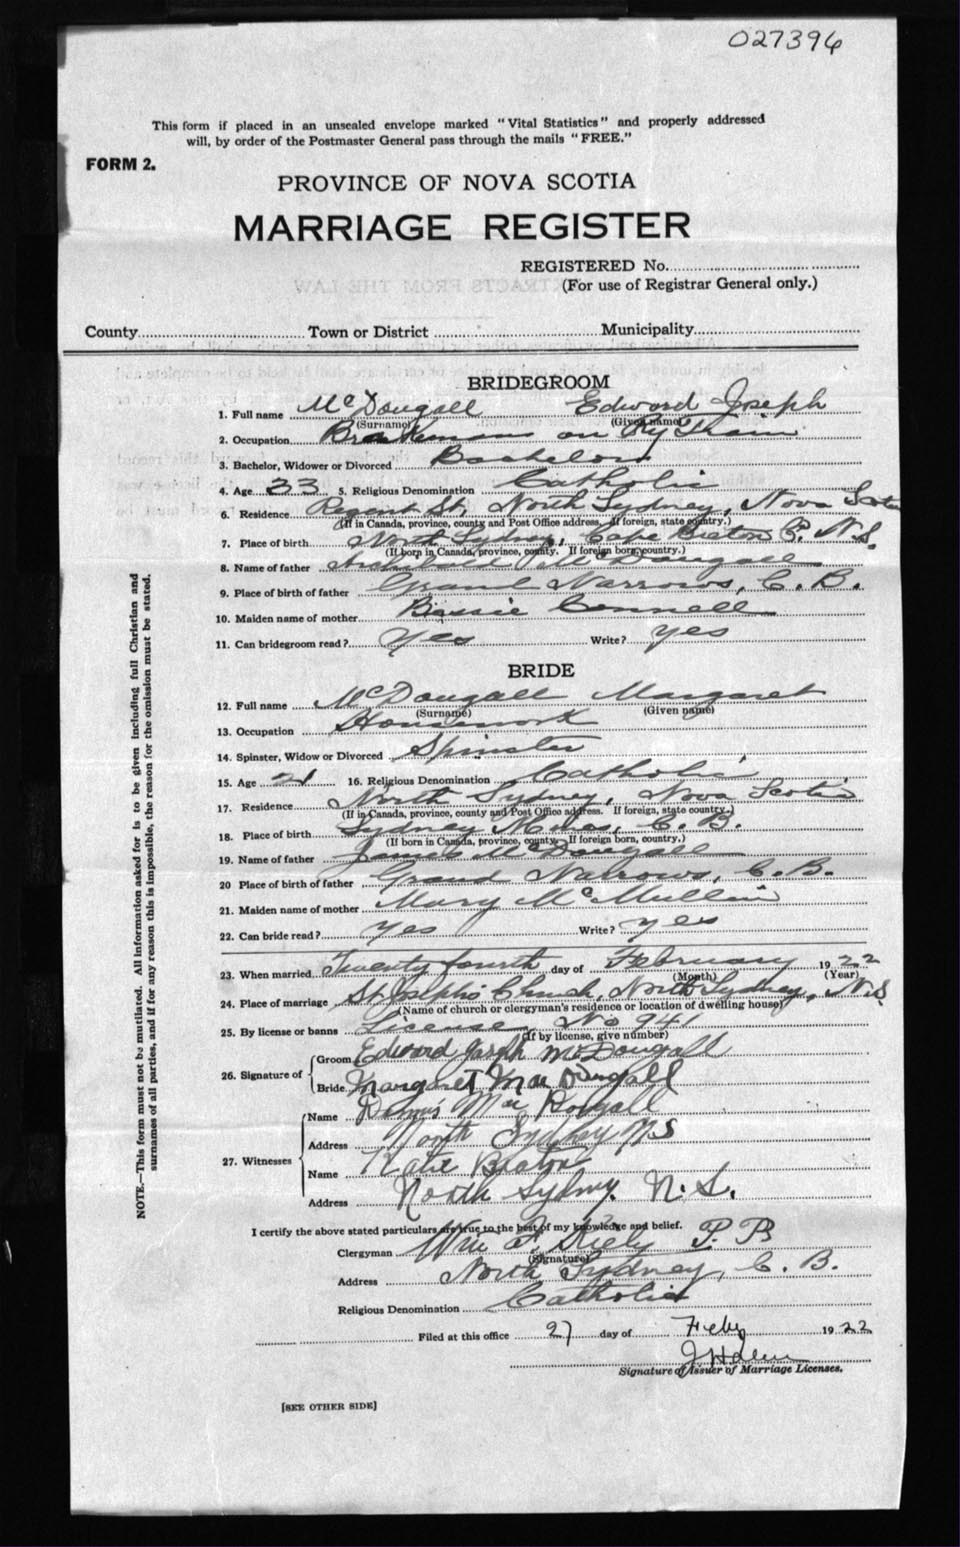 027396
This form if placed in an unsealed envelope marked "Vital Statistics" and properly addressed
will, by order of the Postmaster General pass through the mails "FREE."
FORM 2.
PROVINCE OF NOVA SCOTIA
MARRIAGE REGISTER
REGISTERED No.
(For use of Registrar General only.)
County Town or District Municipality
BRIDEGROOM
1. Full name McDougall Edward Joseph
(Surname) (Given name)
2. Occupation Brakeman on Ry Train
3. Bachelor, Widower or Divorced Bachelor
4. Age 33 5. Religious Denomination Catholic
6. Residence Regent St, North Sydney, Nova Scotia
(If in Canada, province, county and Post Office address. If foreign, state country.)
7. Place of birth North Sydney, Cape Breton N.S.
(If born in Canada, province, county. If foreign born, country.)
8. Name of father Archibald McDougall
9. Place of birth of father Grand Narrows, C.B.
10. Maiden name of mother Bessie Connell
11. Can bridegroom read? Yes Write? Yes
BRIDE
12. Full name McDougall Margaret
(Surname) (Given name)
13. Occupation Housework
14. Spinster, Widow or Divorced Spinster
15. Age 21 16. Religious Denomination Catholic
17. Residence North Sydney, Nova Scotia
(If in Canada, province, county and Post Office address. If foreign, state country.)
18. Place of birth Sydney Mines, C.B.
(If born in Canada, province, county. If foreign born, country.)
19. Name of father James McDougall
20 Place of birth of father Grand Narrows, C.B.
21. Maiden name of mother Mary McMullin
22. Can bride read? Yes Write? Yes
23. When married Twenty fourth day of February 1922
(Month) (Year)
24. Place of marriage St Joseph's Church, North Sydney, N.S
(Name of church or clergyman's residence or location of dwelling house)
25. By license or banns License No 941
(If by license, give number)
26. Signature of
Groom Edward Joseph McDougall
Bride Margaret MacDougall
27. Witnesses
Name Mac Dougall
Address North Sydney NS
Name Katie Beaton
Address North Sydney. N.S.
I certify the above stated particulars are true to the best of my knowledge and belief.
Clergyman Wm F. Kiely P.P
(Signature)
Address North Sydney, C.B.
Religious Denomination Catholic
Filed at this office 27 day of Feby 1922
Signature of Issuer of Marriage Licenses.
[SEE OTHER SIDE]
NOTE.—This form must not be mutilated. All information asked for is to be given including full Christian and
surnames of all parties, and if for any reason this is impossible, the reason for the omission must be stated.